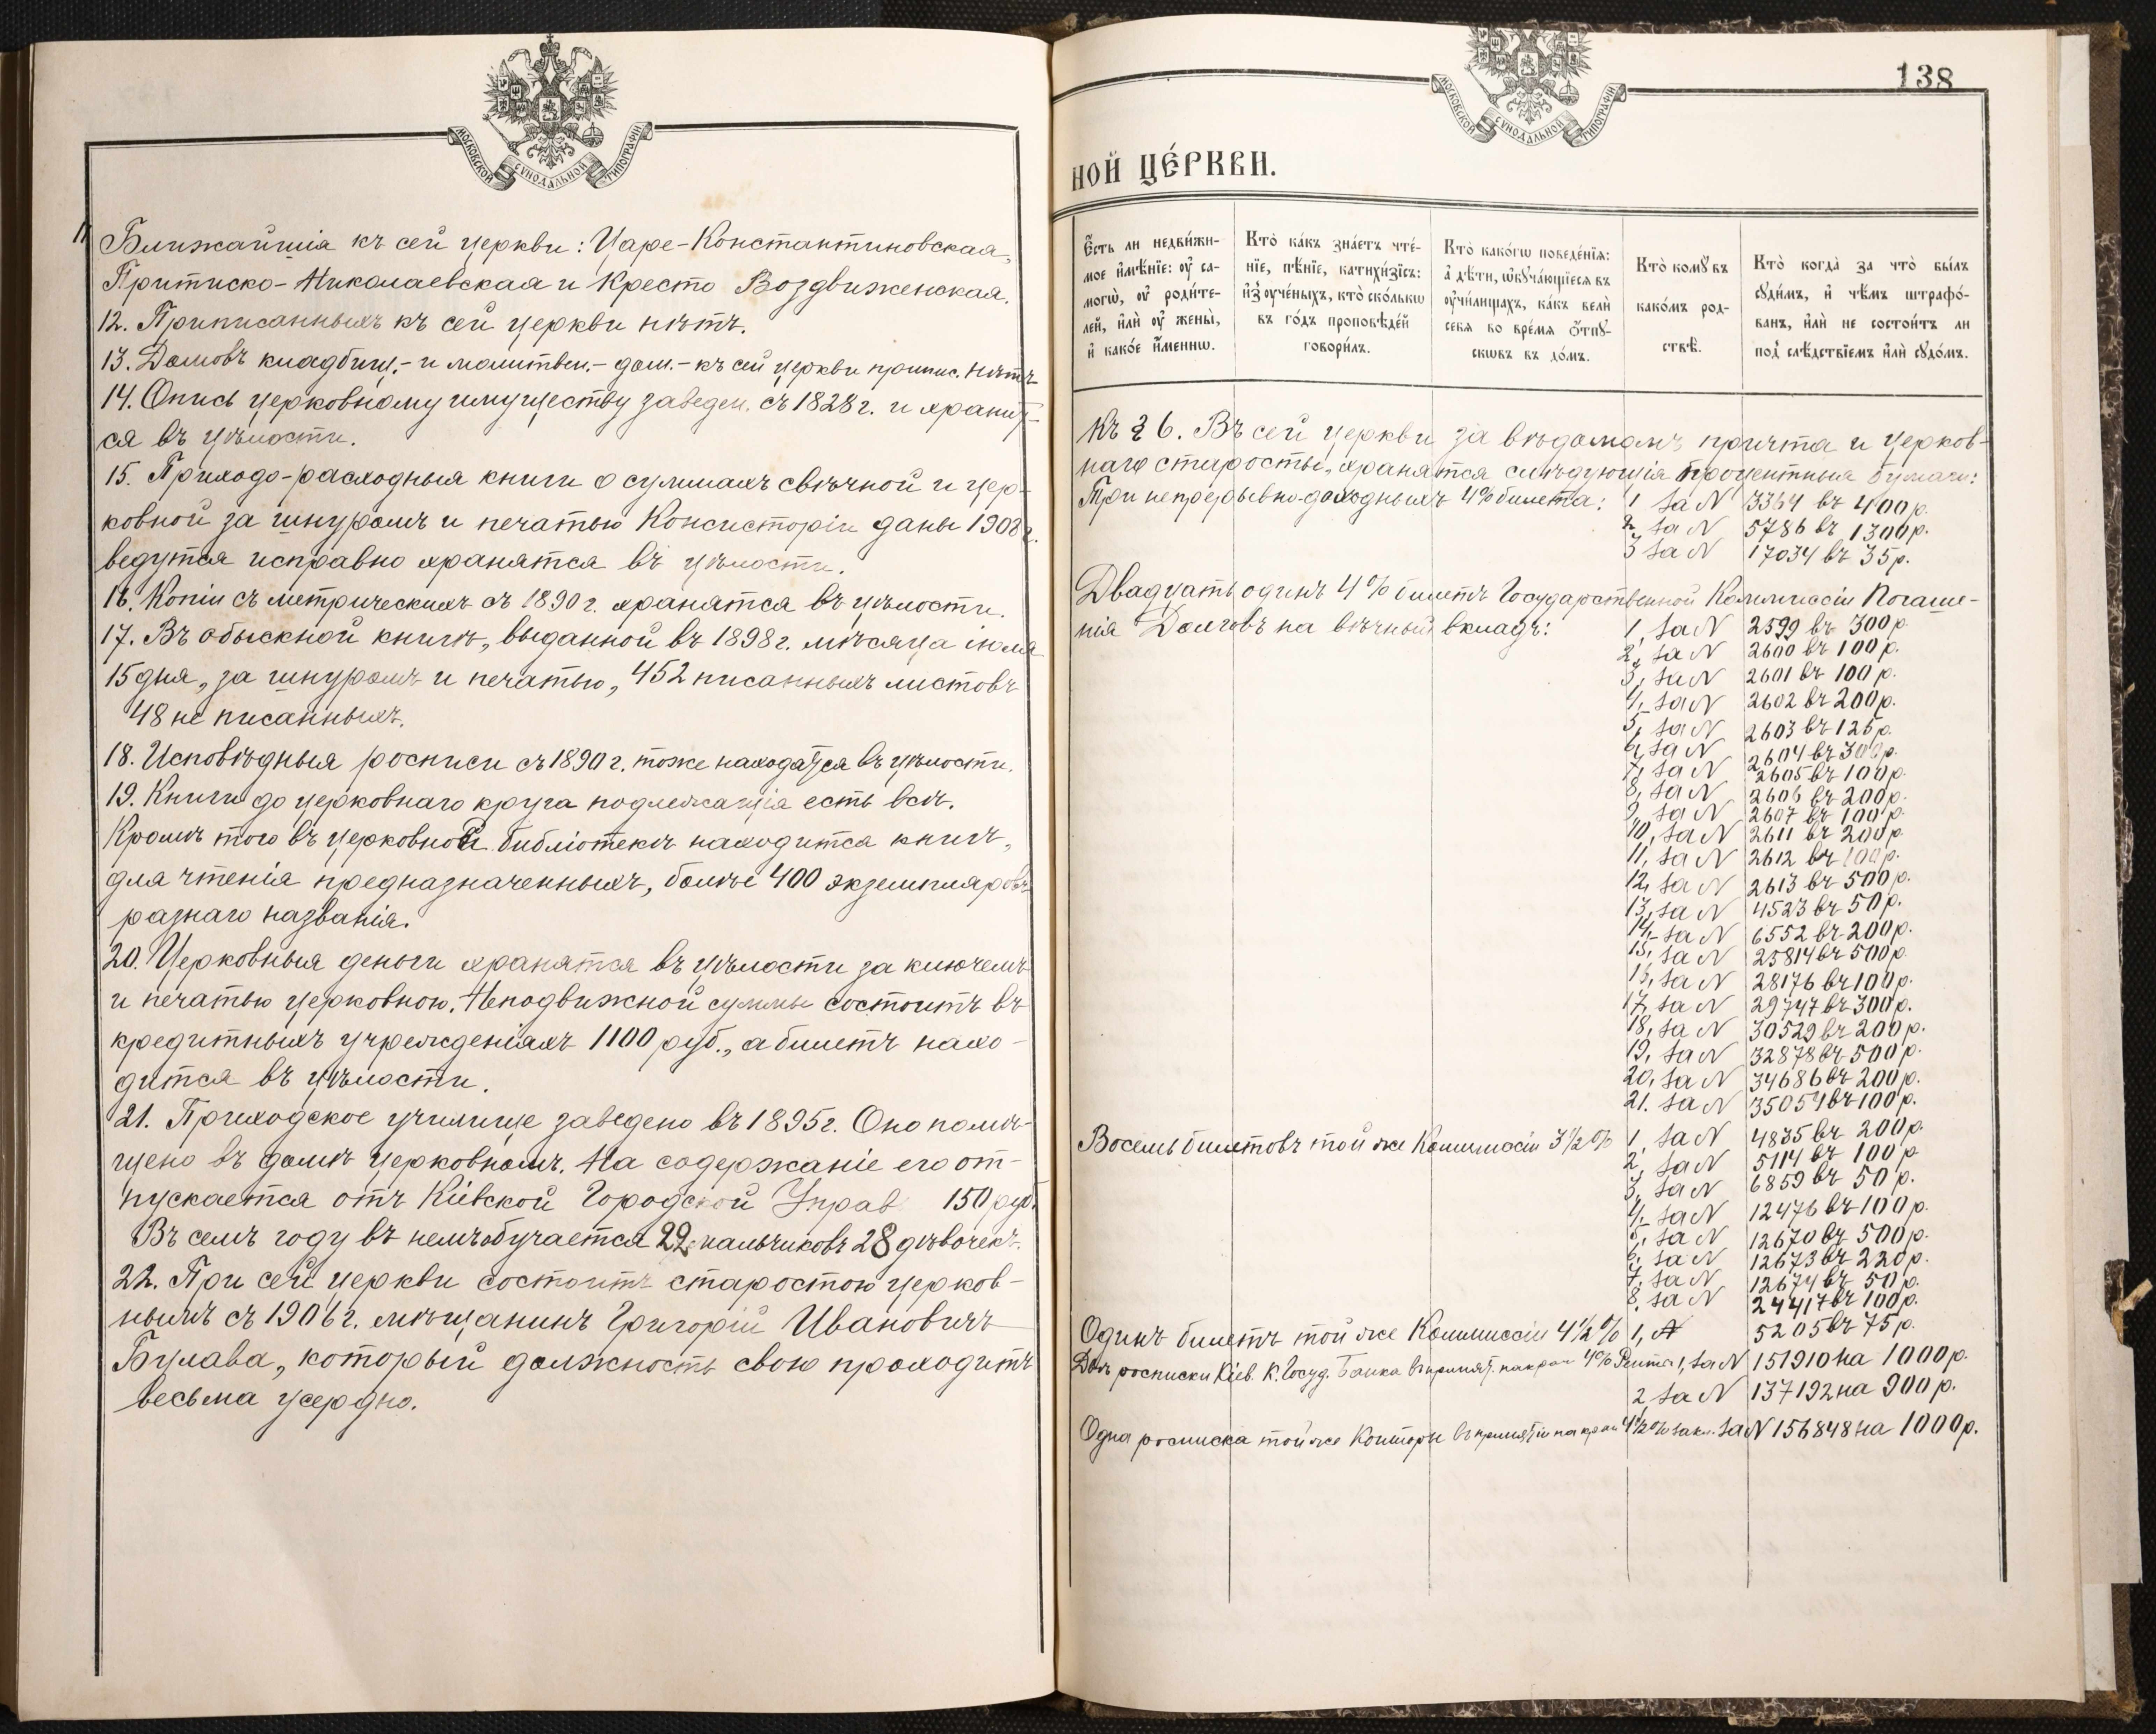 МОСКОВСКОЙ СѴНОДАЛЬНОЙ ТИПОГРАФІИ
11 Ближайшія къ сей церкви: Царе-Константиновская,
Притиско-Николаевская и Кресто Воздвиженская.
12. Приписанныхъ къ сей церкви нѣтъ.
13. Домовъ кладбищ.- и молитвен.- дом.- къ сей церкви припис. нѣтъ
14. Опись церковному имуществу заведен. съ 1828 г. и хранит-
ся въ цѣлости.
15. Приходо-расходныя книги о суммахъ свѣчной и цер-
ковной за шнуромъ и печатью Консисторіи даны 1908 г.
ведутся исправно хранятся въ цѣлости.
16. Копіи съ метрическихъ съ 1890 г. хранятся въ цѣлости.
17. Въ обыскной книгѣ, выданной въ 1898 г. мѣсяца іюля
15 дня, за шнуромъ и печатью, 452 писанныхъ листовъ
48 не писанныхъ.
18. Исповѣдныя росписи съ 1890 г. тоже находятся въ цѣлости.
19. Книги до церковнаго круга подлежащія есть всѣ.
Кромѣ того въ церковной библіотекѣ находится книгъ,
для чтенія предназначенныхъ, болѣе 400 экземпляровъ
разнаго названія.
20. Церковныя деньги хранятся въ цѣлости за ключемъ
и печатью церковною. Неподвижной суммы состоитъ въ
кредитныхъ учрежденіяхъ 1100 руб., а билетъ нахо-
дится въ цѣлости.
21. Приходское училище заведено въ 1895 г. Оно помѣ-
щено въ домѣ церковномъ. На содержаніе его от-
пускается отъ Кіевской Городской Управ 150 руб.
Въ семъ году въ немъ обучается 22 мальчиковъ 28 дѣвочекъ.
22. При сей церкви состоитъ старостою церков-
нымъ съ 1906 г. мѣщанинъ Григорій Ивановичъ
Булава, который должность свою проходитъ
весьма усердно.
МОСКОВСКОЙ СѴНОДАЛЬНОЙ ТИПОГРАФІИ
138
НОЙ ЦЕ́РКВИ.
Є҆́сть ли недви́жи-
мое и҆мѣ́нїе: оу҆ са-
могѡ̀, оу҆ роди́те-
лей, и҆лѝ оу҆ жены̀,
и҆ како́е и҆́меннѡ.
Кто̀ ка́къ зна́етъ чте́-
нїе, пѣ́нїе, катихи́зїсъ:
и҆з̾ оуче́ныхъ, кто̀ ско́лькѡ
въ го́дъ проповѣ́дей
говори́лъ.
Кто̀ како́гѡ поведе́нїѧ:
а҆ дѣ́ти, ѡ҆бꙋча́ющїесѧ въ
оу҆чи́лищахъ, ка́къ велѝ
себѧ̀ во вре́мѧ ѿпꙋ-
скѡвъ въ до́мъ.
Кто̀ комꙋ̀ въ
како́мъ род-
ствѣ̀.
Кто̀ когда̀ за что̀ бы́лъ
сꙋди́мъ, и҆ чѣ́мъ штрафо́-
ванъ, и҆лѝ не состои́тъ ли
под̾ слѣ́дствїемъ и҆лѝ сꙋдо́мъ.
Къ § 6. Въ сей церкви за вѣдомомъ причта и церков-
наго старосты, хранятся слѣдующія процентныя бумаги:
Три непрерывно-доходныхъ 4% билета: 1 за N 3364 въ 400 р.
2 за N 5786 въ 1300 р.
3 за N 17034 въ 35 р.
Двадцать одинъ 4% билетъ Государственной Коммиссіи Погаше-
нія Долговъ на вѣчный вкладъ: 1, за N 2599 въ 300 р.
2, за N 2600 въ 100 р.
3, за N 2601 въ 100 р.
4, за N 2602 въ 200 р.
5, за N 2603 въ 125 р.
6, за N 2604 въ 300 р.
7, за N 2605 въ 100 р.
8, за N 2606 въ 200 р.
9, за N 2607 въ 100 р.
10, за N 2611 въ 200 р.
11, за N 2612 въ 100 р.
12, за N 2613 въ 500 р.
13, за N 4523 въ 50 р.
14, за N 6552 въ 200 р.
15, за N 25814 въ 500 р.
16, за N 28176 въ 100 р.
17, за N 29747 въ 300 р.
18, за N 30529 въ 200 р.
19, за N 32878 въ 500 р.
20, за N 34686 въ 200 р.
21. за N 35054 въ 100 р.
Восемь билетовъ той же Коммиссіи 3½% 1, за N 4835 въ 200 р.
2, за N 5114 въ 100 р.
3, за N 6859 въ 50 р.
4, за N 12476 въ 100 р.
5, за N 12670 въ 500 р.
6, за N 12673 въ 220 р.
7, за N 12674 въ 50 р.
8, за N 24417 въ 100 р.
Одинъ билетъ той же Коммиссіи 4½% 1, N 5205 въ 75 р.
Двѣ росписки Кіев. К. Госуд. Банка въ принят. на хран 4% Рента 1, за N 151910 на 1000 р.
2 за N 137192 на 900 р.
Одна росписка той же Конторы въ принятіи на хран 4½% закл. за N 156848 на 1000 р.